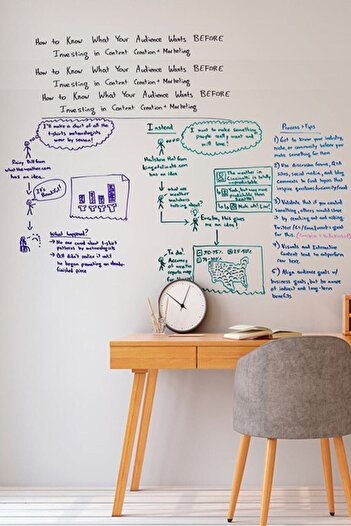 How to Know What Your Audience Wants BEFORE
Investing in Content Creation + Marketing
How to Know What Your Audience Wants BEFORE
Investing in Content Creation + Marketing
How to Know What Your Audience Wants BEFORE
Investing in Content Creation + Marketing
I'll make a chart of all the
t-shirts meteorologists
wear by season!
Rainy Bill from
whattheweather.com
has an idea...
It's Beautiful!
What happened?
→ No one cared about t-shirt
patterns by meteorologists
→ Bill didn't realize it until
he began promoting an
finished piece
Instead
I want to make something
people really want and
will love!
Matthew that from
has an idea
what are
weather
talking about?
The weather in
Cincinnati is totally
unpredictable
Eureka, this gives
me an idea!
To do:
Accuracy
of weather
reports map
Process + Tips
1) Get to know your industry,
niche, or community before you
make something for them
2) Use discussion forums, Q+A
sites, social media, and blog
comments to find topics that
inspire questions/curiosity/need
3) Validate that if you created
something, others would share
it by reaching out and asking.
Twitter/G+/Email works great
for this.
4) Visuals and Interactive
Content tend to outperform
raw text.
5) Align audience goals w/
business goals, but be aware
of indirect and long-term
benefits